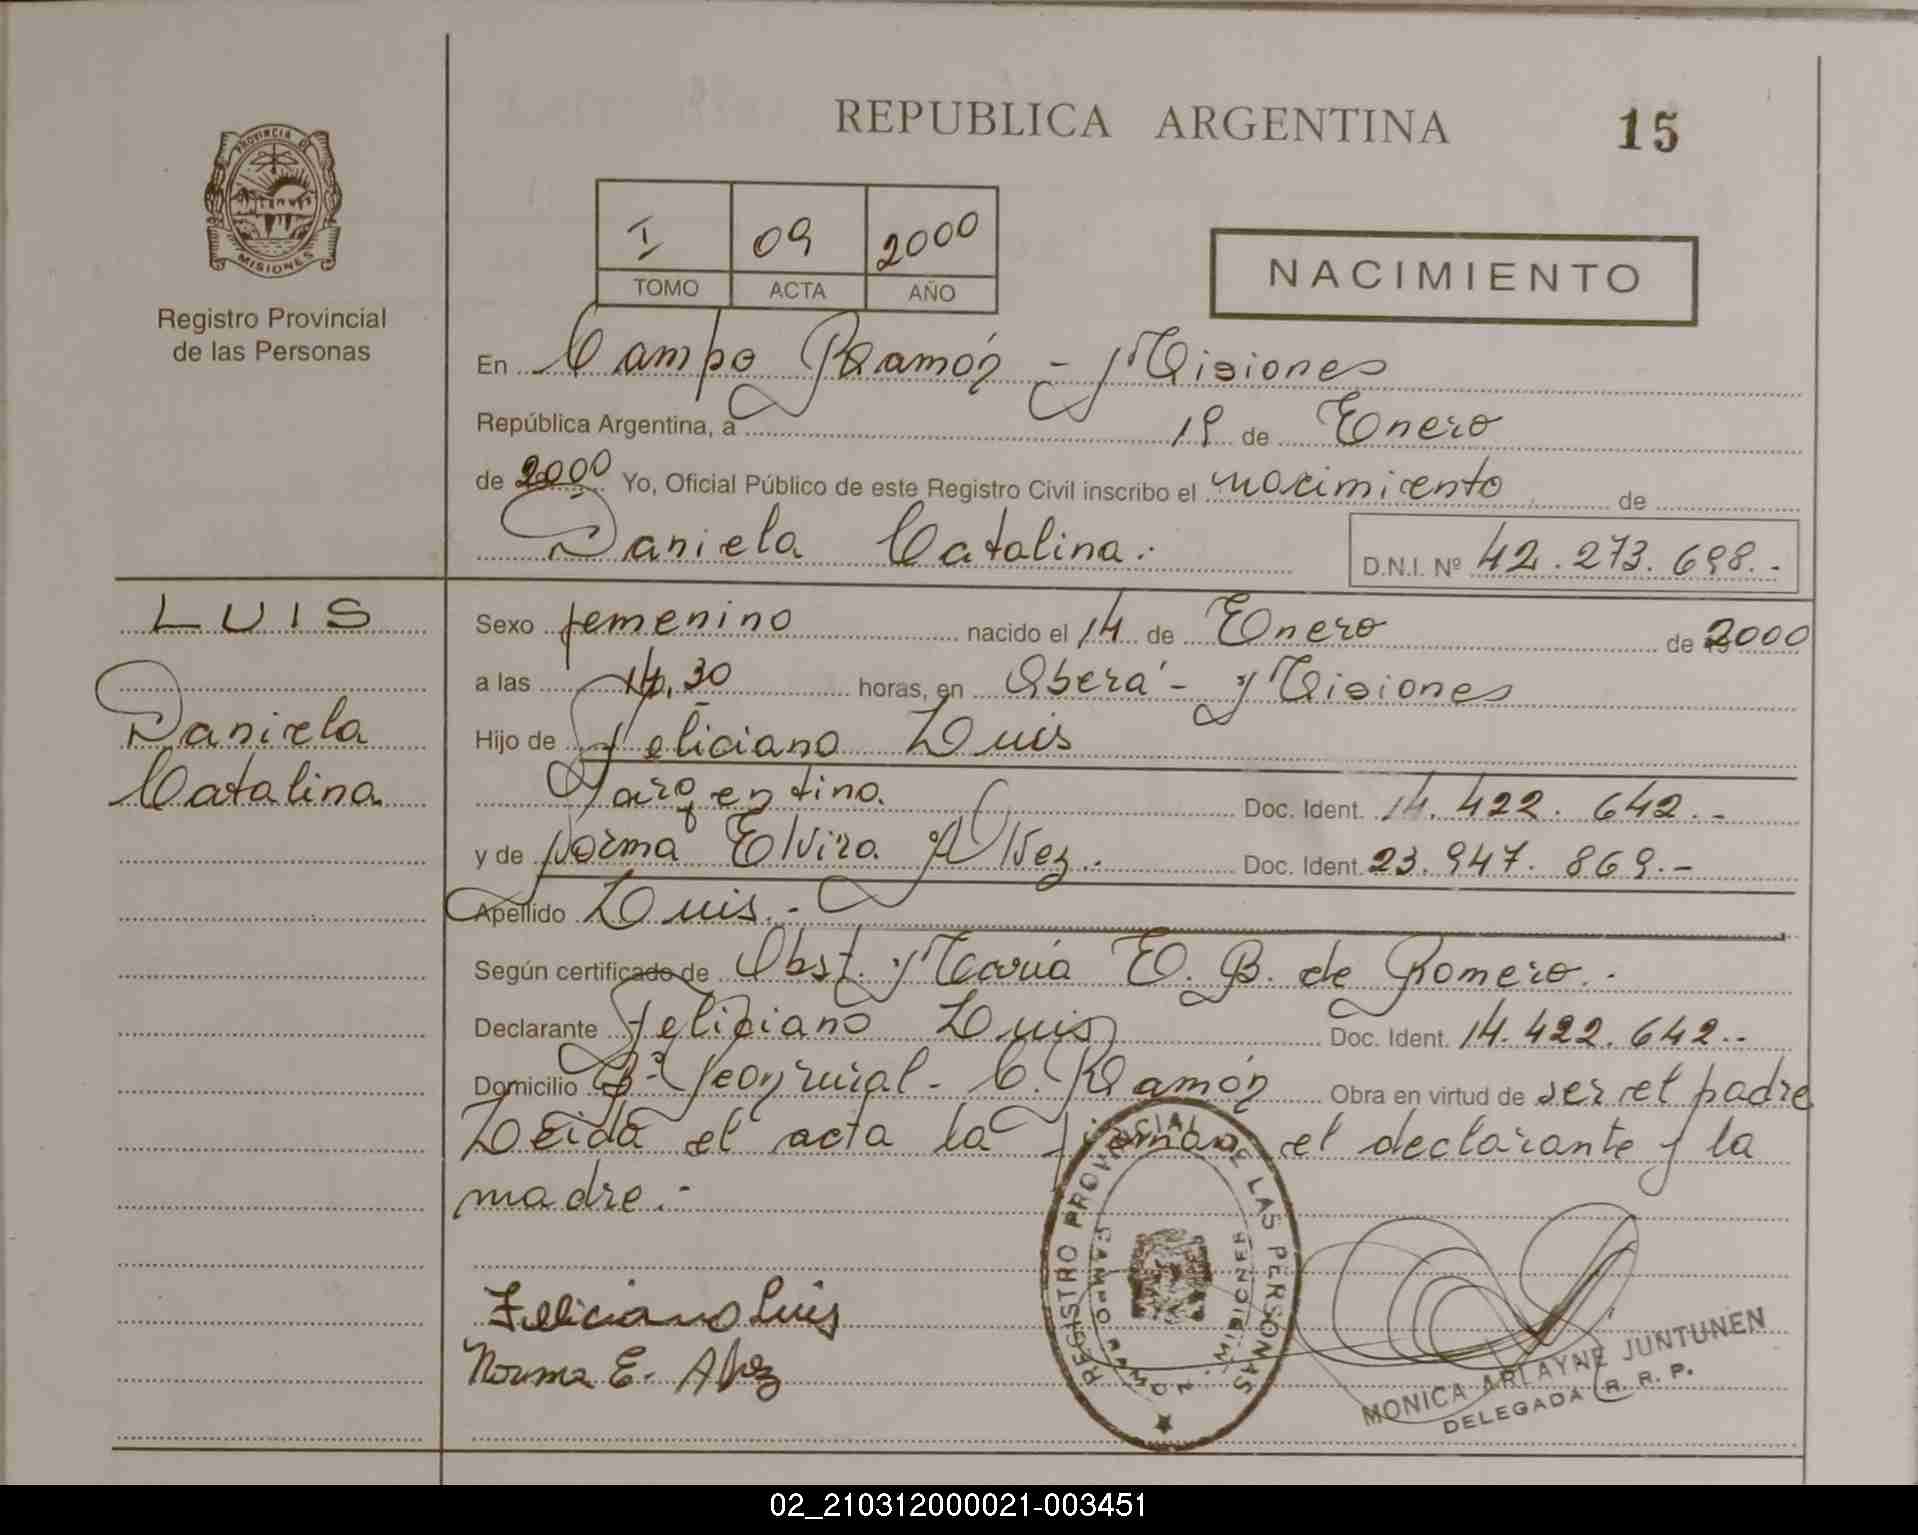 REPUBLICA ARGENTINA
15
PROVINCIA DE
MISIONES
Registro Provincial
de las Personas
I 09 2000
TOMO ACTA AÑO
NACIMIENTO
En Campo Ramón - Misiones
República Argentina, a 19 de Enero
de 2000 Yo, Oficial Público de este Registro Civil inscribo el nacimiento de
Daniela Catalina.-
D.N.I. Nº 42.273.698.-
LUIS
Daniela
Catalina
Sexo femenino nacido el 14 de Enero de 2000
a las 14,30 horas, en Oberá - Misiones
Hijo de Feliciano Luis
argentino. Doc. Ident. 14.422.642.-
y de Norma Elvira Alvez.- Doc. Ident. 23.947.869.-
Apellido Luis.-
Según certificado de Obst. María E. B. de Romero.-
Declarante Feliciano Luis Doc. Ident. 14.422.642.-
Domicilio Bº Peon rural - C. Ramón Obra en virtud de ser el padre
Leida el acta la firman el declarante y la
madre.-
Feliciano Luis
Norma E. Alvez
REGISTRO PROVINCIAL DE LAS PERSONAS
CAMPO RAMON
MISIONES
MONICA ARLAYNE JUNTUNEN
DELEGADA R. R. P.
02_210312000021-003451